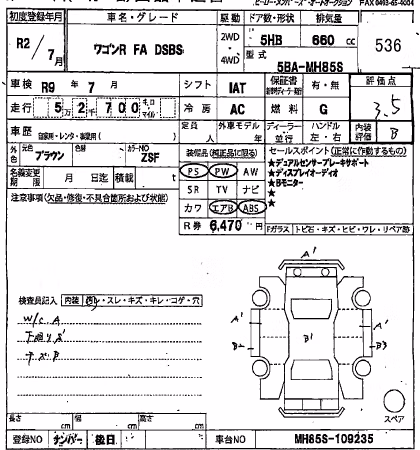 FAX 0463-65-4004
初度登録年月 車名・グレード 駆動 ドア数・形状 排気量
R2/7月 ワゴンR FA DSBS 2WD・4WD 5HB 660 cc 536
型式 5BA-MH85S
車検 R9 年 7 月 シフト IAT 保証書 有・無 評価点
走行 5万2千700 キロ マイル 冷房 AC 燃料 G 3.5
車歴 自家用・レンタ・事業用( ) 定員 人 外車モデル 年 ディーラー・並行 ハンドル 左・右 内装評価 B
外色 元色 ブラウン 色替 カラーNO ZSF
装備品(純正品に限る) セールスポイント(正常に作動するもの)
PS PW AW ★デュアルセンサーブレーキサポート
名義変更期限 月 日迄 積載 t SR TV ナビ ★ディスプレイオーディオ
カワ エアB ABS ★Bモニター
★
★
注意事項(欠品・修復・不具合箇所および状態)
R券 6,470 円
Fガラス トビ石・キズ・ヒビ・ワレ・リペア跡
検査員記入 内装 ヨゴレ・スレ・キズ・キレ・コゲ・穴
W/C A
下廻りサビ
キズ B
A'
A' B' A'
B2 B3
A'
スペア
長さ cm 幅 cm 高さ cm
登録NO ナンバー 後日 車台NO MH85S-109235